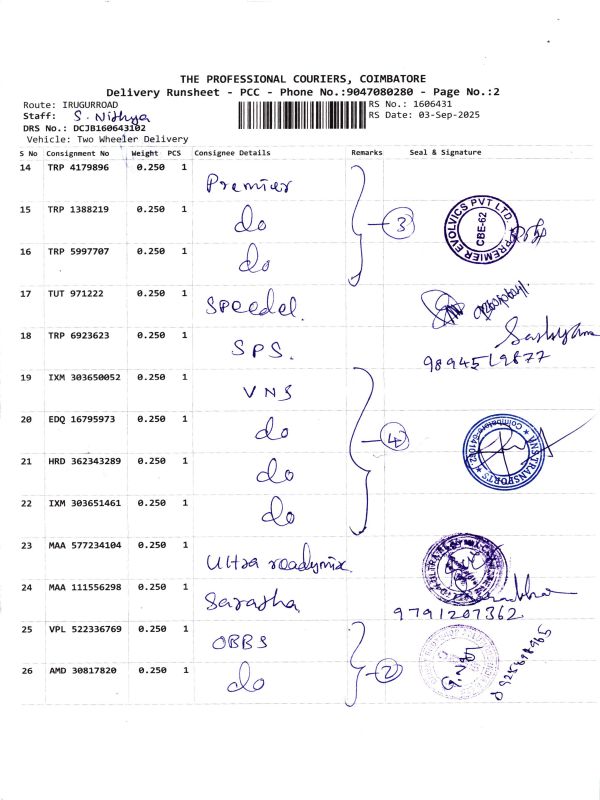 THE PROFESSIONAL COURIERS, COIMBATORE
Delivery Runsheet - PCC - Phone No.:9047080280 - Page No.:2
Route: IRUGURROAD
RS No.: 1606431
Staff: S. Nithya
RS Date: 03-Sep-2025
DRS No.: DCJB160643102
Vehicle: Two Wheeler Delivery
S No Consignment No Weight PCS Consignee Details Remarks Seal & Signature
14 TRP 4179896 0.250 1 Premier
15 TRP 1388219 0.250 1 do 3
PREMIER EVOLVICS PVT LTD. CBE-62
16 TRP 5997707 0.250 1 do
17 TUT 971222 0.250 1 Speedel
18 TRP 6923623 0.250 1 SPS.
9894519877
19 IXM 303650052 0.250 1 VNS
20 EDQ 16795973 0.250 1 do 4
VNS TRANSPORTS
21 HRD 362343289 0.250 1 do
22 IXM 303651461 0.250 1 do
23 MAA 577234104 0.250 1 Ultra readymix
24 MAA 111556298 0.250 1 Sarasha
9791207362
25 VPL 522336769 0.250 1 OBBS
26 AMD 30817820 0.250 1 do 2